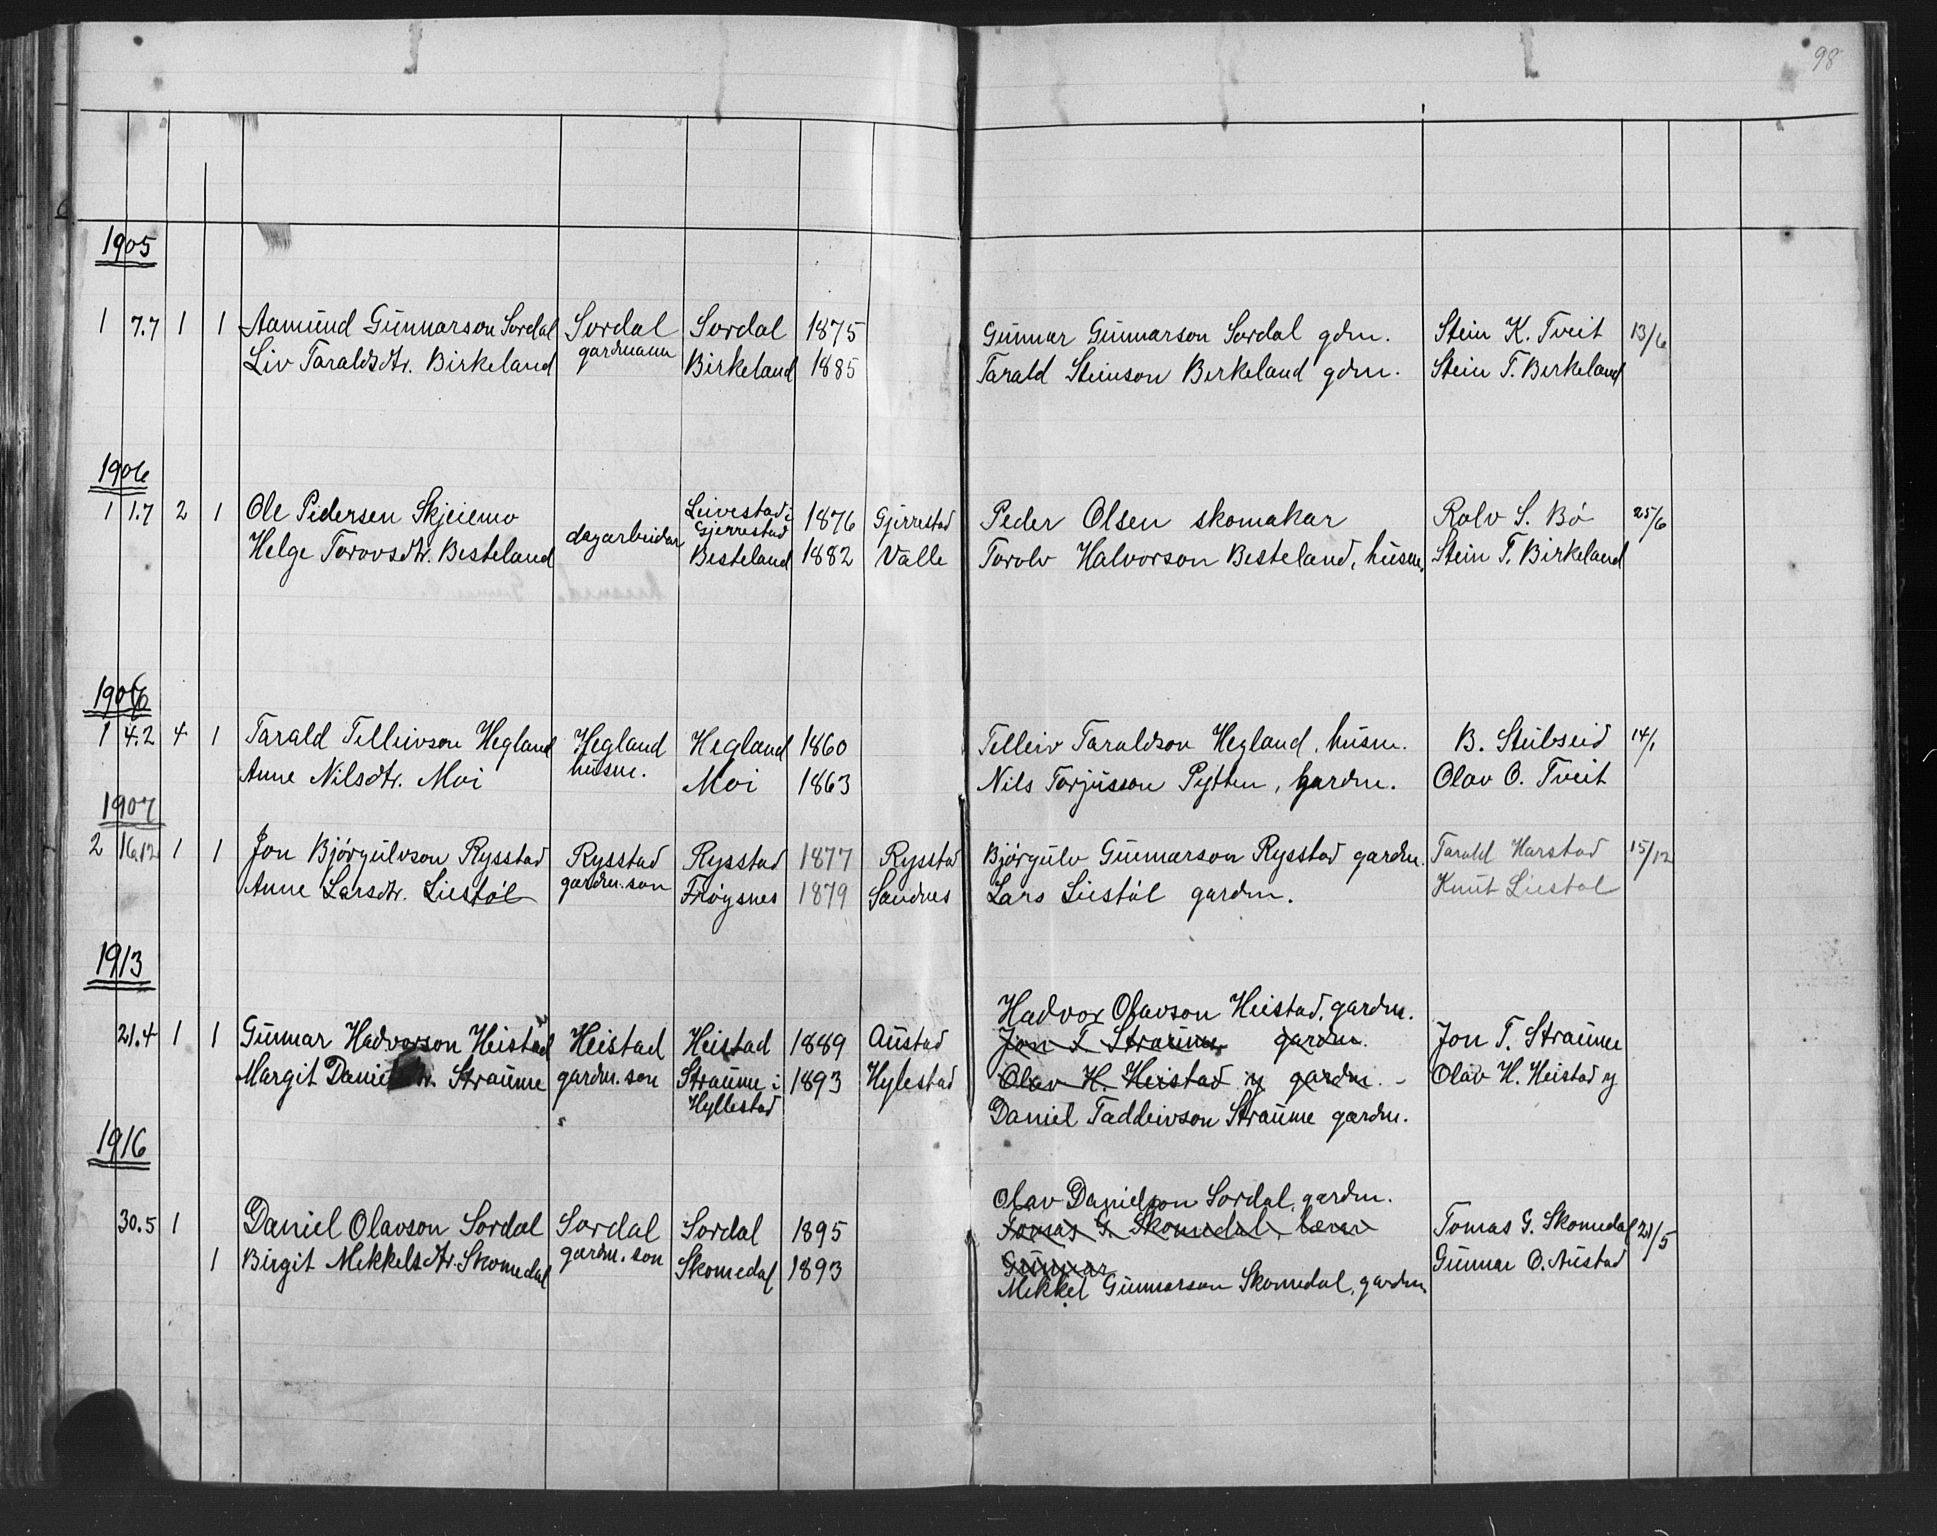 98
1905
1 7.7 1 1 Aamund Gunnarson Sordal Sordal Sordal 1875 Gunnar Gunnarson Sordal gdm. Stein K. Tveit 13/6
gardmann
Liv Taraldsdtr. Birkeland Birkeland 1885 Tarald Steinson Berkeland gdm. Stein T. Berkeland
1906
1 1.7 2 1 Ole Pedersen Skjeiemo dagarbeidar Leivestad i Gjerrestad 1876 Gjerrestad Peder Olsen skomakar Rolv S. Bø 25/6
Helge Torovsdtr. Besteland Besteland 1882 Valle Torolv Halvorson Besteland, husm. Stein T. Birkeland
1906
1 4.2 4 1 Tarald Telleivson Hegland Hegland Hegland 1860 Telleiv Taraldson Hegland, husm. B. Stubseid 14/1
husm.
Anne Nilsdtr. Moi Moi 1863 Nils Torjusson Pytten, gardm. Olav O. Tveit
1907
2 16.12 1 1 Jon Bjørgulvson Rysstad Rysstad Rysstad 1877 Rysstad Bjørgulv Gunnarson Rysstad gardm. Tarald Harstad 15/12
Anne Larsdtr. Liestøl gardm. son Frøysnes 1879 Sandnes Lars Liestøl gardm. Knut Liestøl
1913
Hadvor Olavson Heistad, gardm.
21.4 1 1 Gunnar Hadvorson Heistad Heistad Heistad 1889 Austad Jon T. Straume, gardm. Jon T. Straume
Margit Daniel tr. Straume gardm. son Straume i Hyllestad 1893 Hylestad Olav H. Heistad y gardm. - Olav H. Heistad y
Daniel Taddeivson Straume gardm.
1916
Olav Danielson Sordal, gardm.
30.5 1 Daniel Olavson Sordal Sordal Sordal 1895 Tomas G. Skomedal, lærar Tomas G. Skomedal 21/5
1 Birgit Mekkelsdtr. Skomedal gardm. son Skomedal 1893 Gunnar Gunnar O. Austad
Mekkel Gunnarson Skomedal, gardm